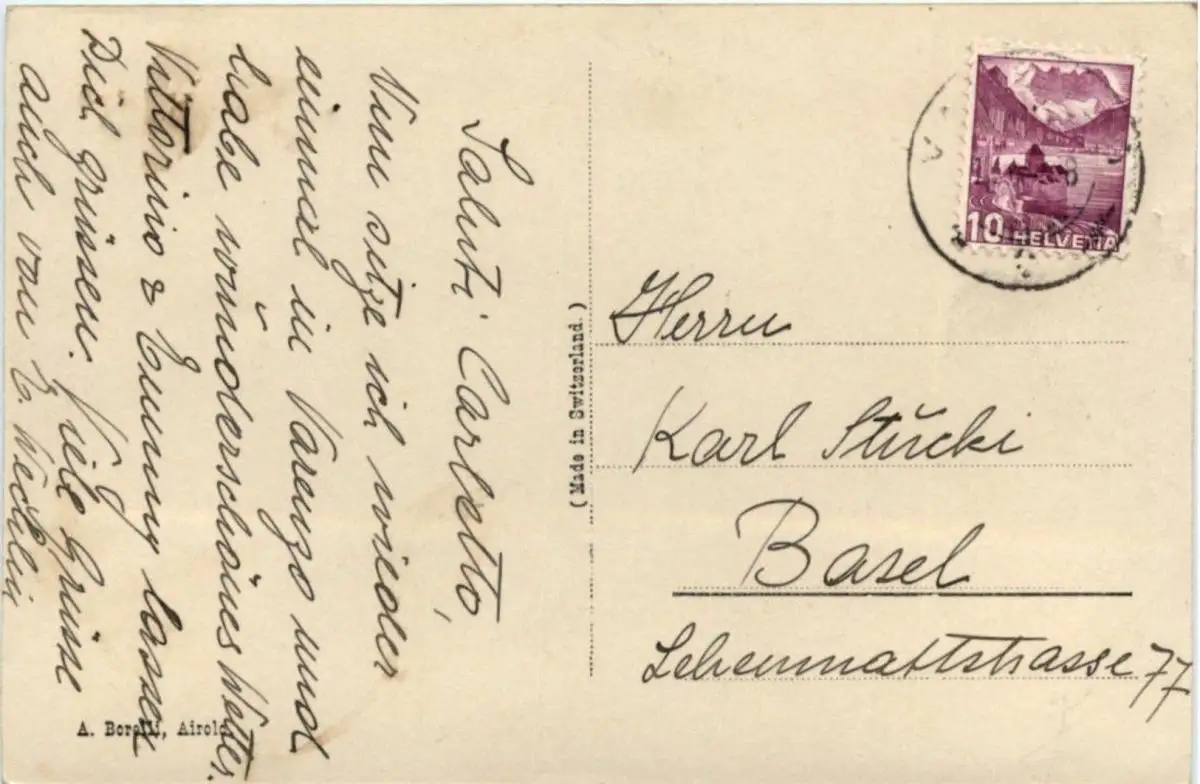 Saluti Carletto,
Nun sitze ich wieder
einmal in Varenzo und
habe wunderschönes Wetter.
Vittorino & Emmy lassen
Dich grüssen. Viele Grüsse
auch von E.
(Made in Switzerland.)
A. Borelli, Airolo
10 HELVETIA
Herrn
Karl Stucki
Basel
Lehenmattstrasse 77